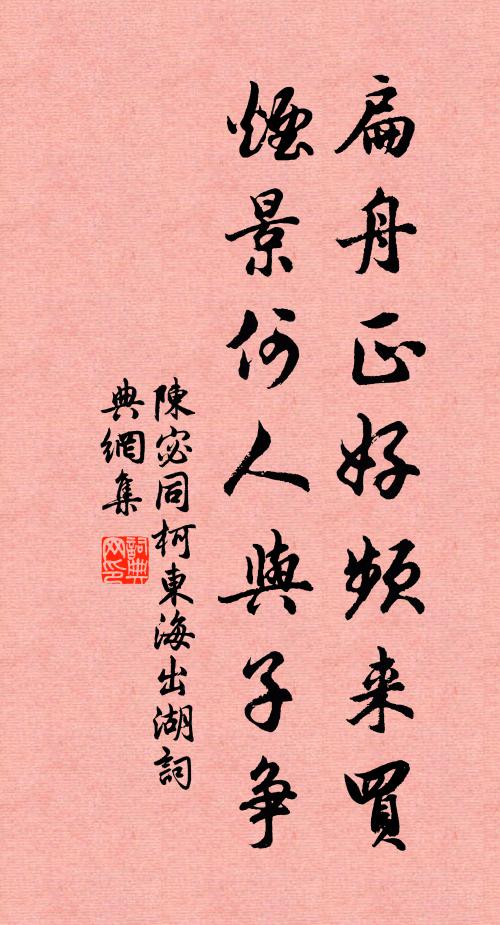 扁舟正好頻来買
煙景何人與子争
陳宓同柯東海出湖詞
典網集
詞典網印